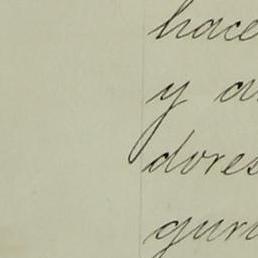 hace
y a
dores
gun